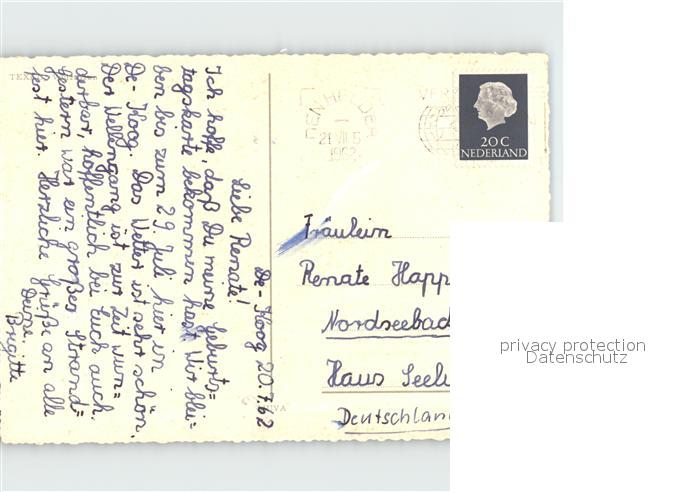 TEXEL
De-Koog 20.7.62
Liebe Renate!
Ich hoffe, daß Du meine Geburts=
tagskarte bekommen hast. Wir blei=
ben bis zum 29. Juli hier in
De-Koog. Das Wetter ist sehr schön.
Der Wellengang ist zur Zeit wun=
derbar, hoffentlich bei Euch auch.
Gestern war ein großes Strand=
fest hier. Herzliche Grüße an alle
Deine
Brigitte
DEN HELDER
21 VII 5
1962
20 C
NEDERLAND
Fräulein
Renate Happ
Nordseebad
Haus Seel
Deutschland
privacy protection
Datenschutz